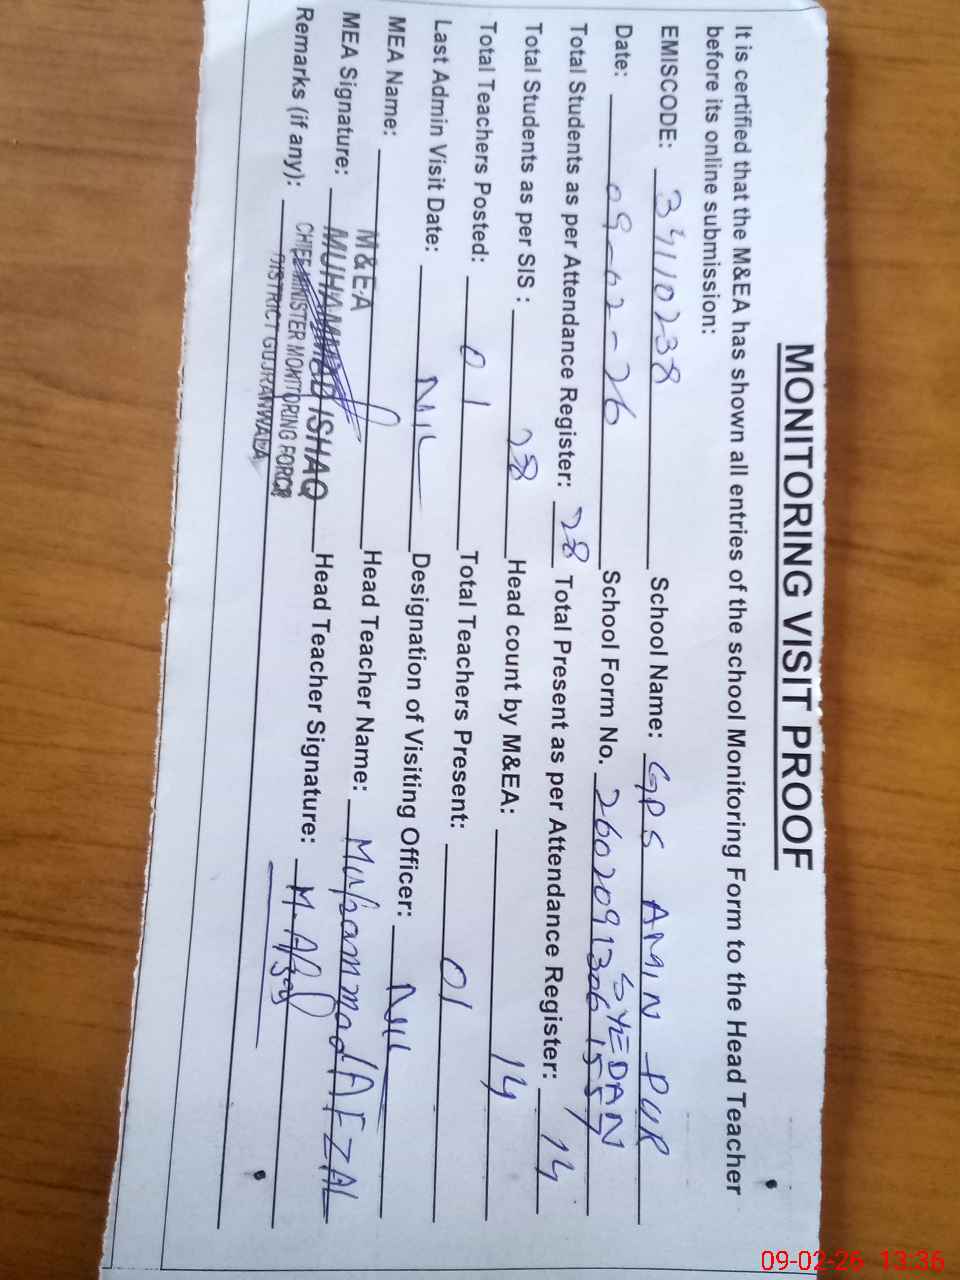 MONITORING VISIT PROOF
It is certified that the M&EA has shown all entries of the school Monitoring Form to the Head Teacher
before its online submission:
EMISCODE: 34110238 School Name: GPS AMIN PUR
SYEDAN
Date: 09-02-26 School Form No. 2602091306155
Total Students as per Attendance Register: 28 Total Present as per Attendance Register: 14
Total Students as per SIS : 28 Head count by M&EA: 14
Total Teachers Posted: 01 Total Teachers Present: 01
Last Admin Visit Date: NIL Designation of Visiting Officer: NIL
MEA Name: M&E.A Head Teacher Name: Muhammad AFZAL
MEA Signature: MUHAMMAD ISHAQ Head Teacher Signature: M. Afzal
Remarks (if any): CHIEF MINISTER MONITORING FORCE
DISTRICT GUJRANWALA
09-02-26 13:36